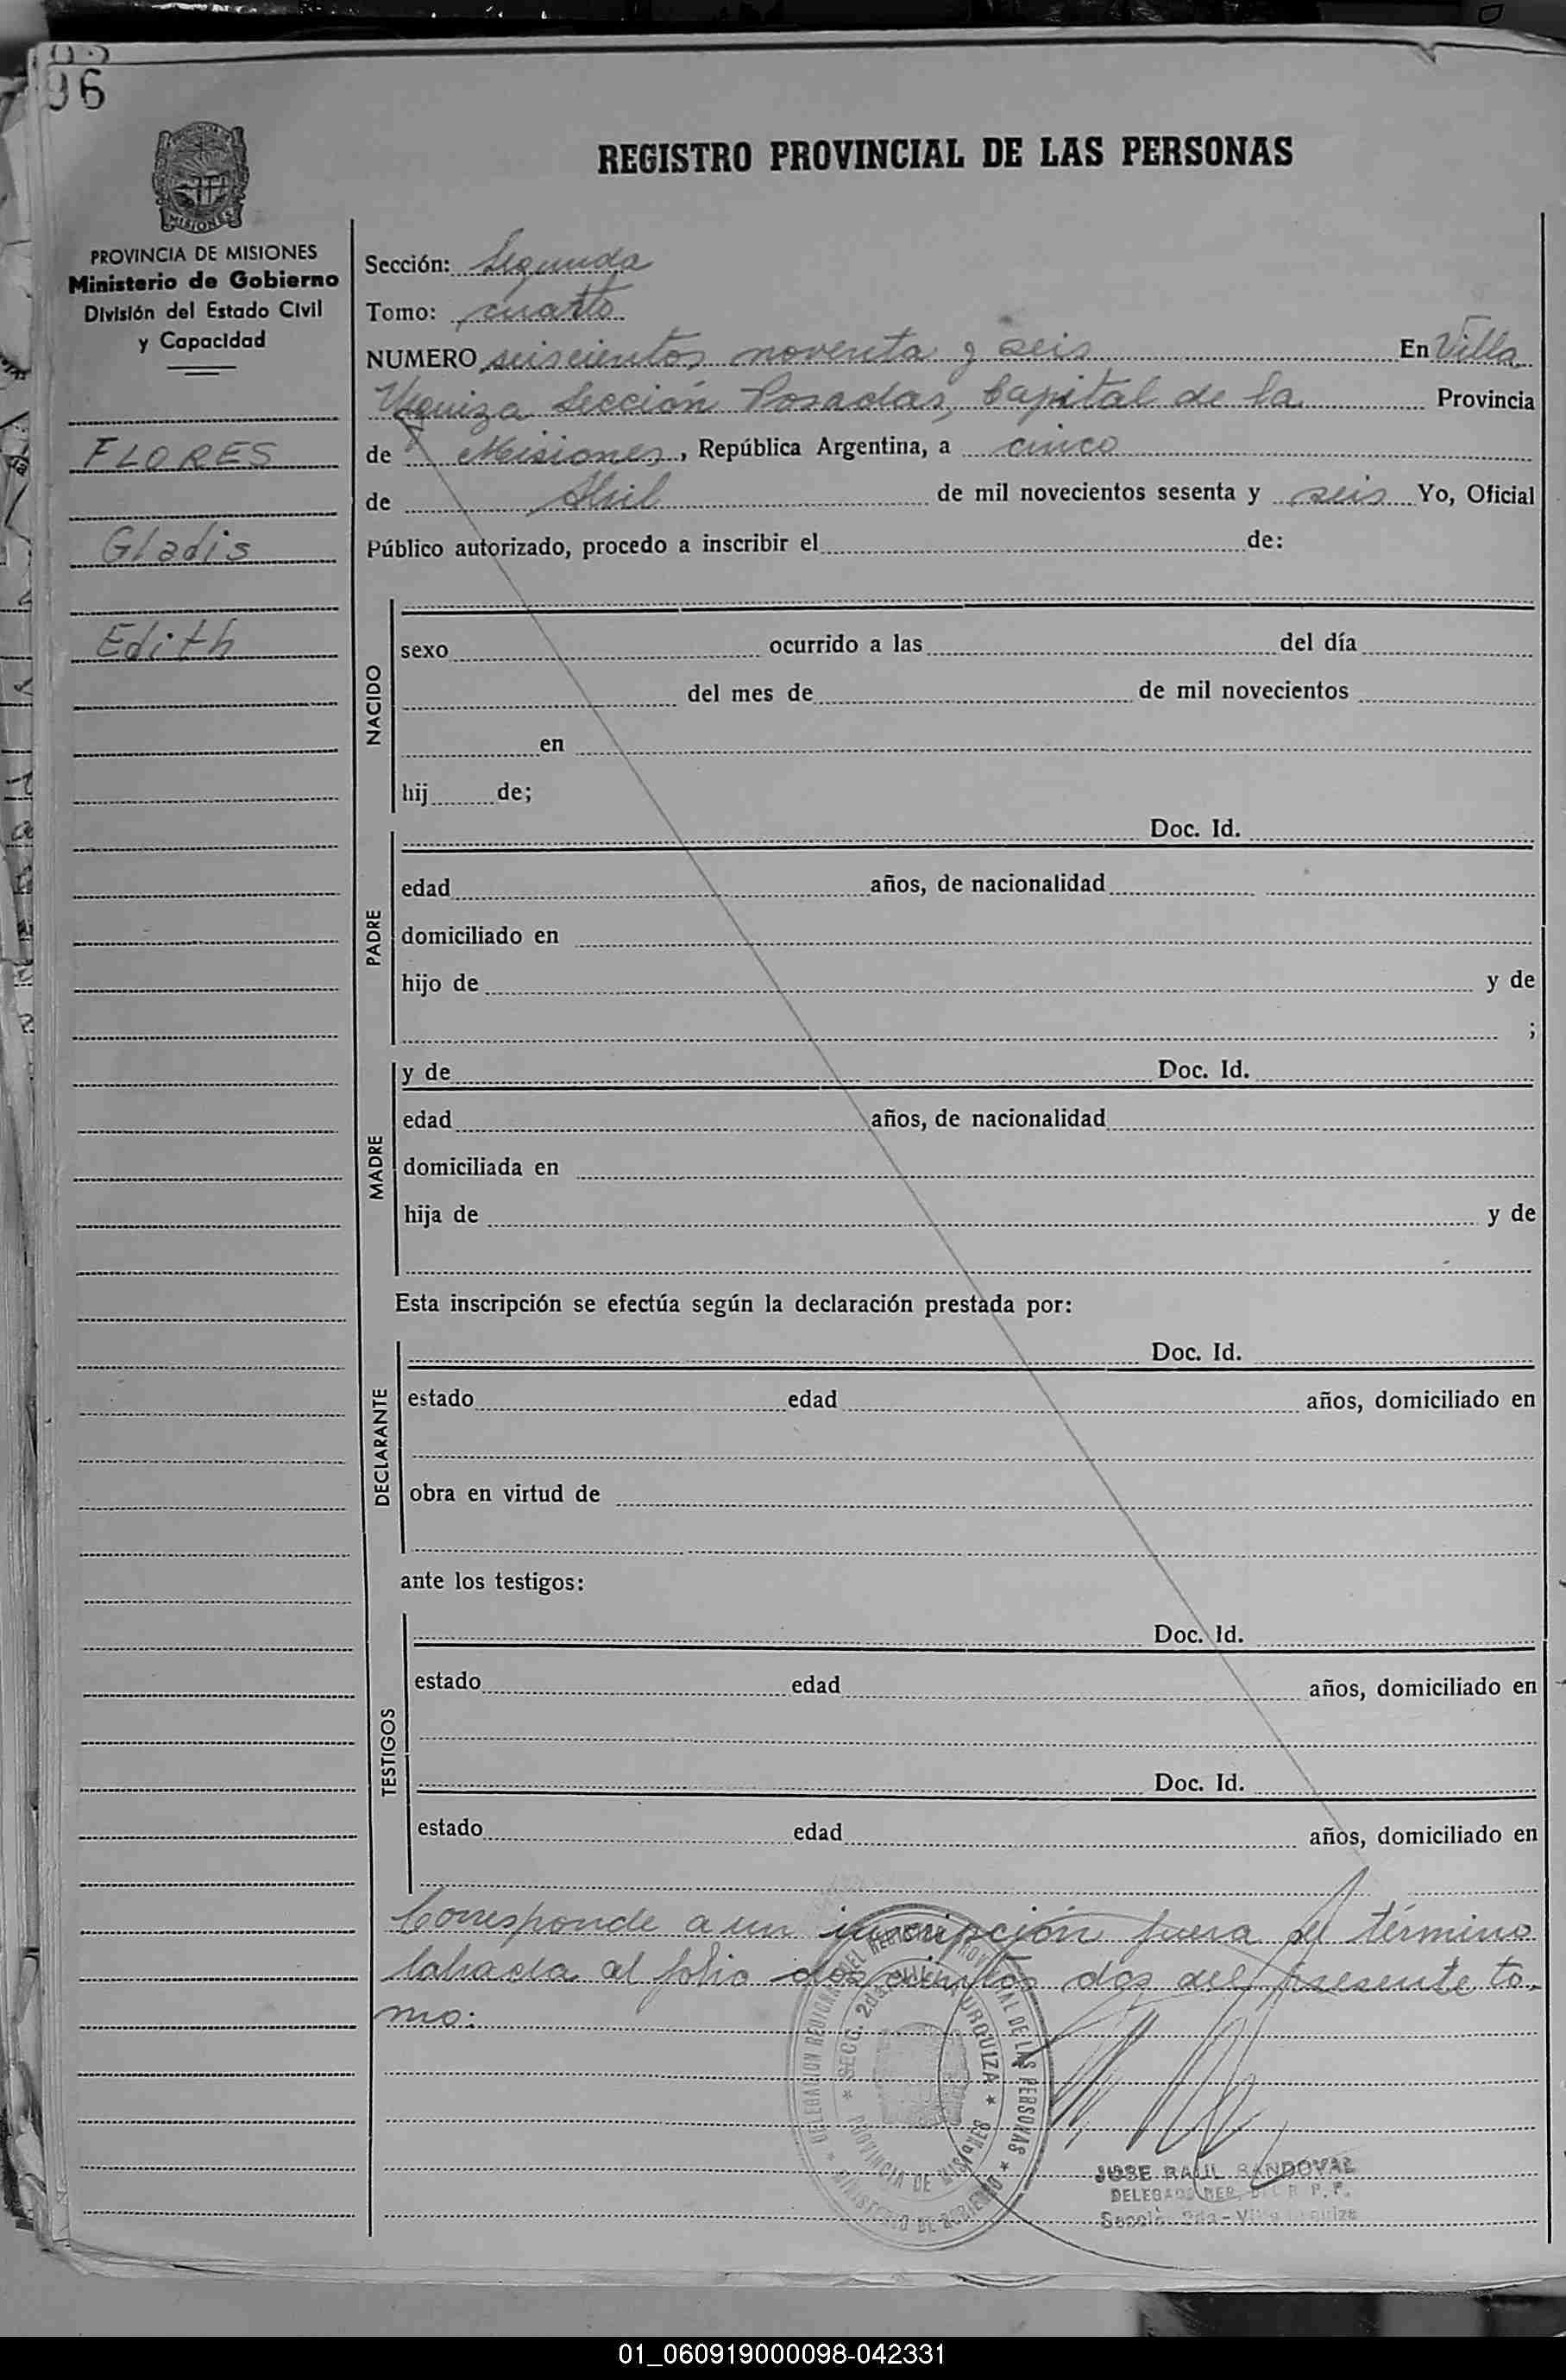 96
REGISTRO PROVINCIAL DE LAS PERSONAS
MISIONES
PROVINCIA DE MISIONES
Ministerio de Gobierno
División del Estado Civil
y Capacidad
FLORES
Gladis
Edith
Sección: Segunda
Tomo: cuarto
NUMERO seiscientos noventa y seis En Villa
Urquiza Sección Posadas, Capital de la Provincia
de Misiones, República Argentina, a cinco
de Abril de mil novecientos sesenta y seis Yo, Oficial
Público autorizado, procedo a inscribir el de:
NACIDO
sexo ocurrido a las del día
del mes de de mil novecientos
en
hij de;
PADRE
Doc. Id.
edad años, de nacionalidad
domiciliado en
hijo de y de
;
MADRE
y de Doc. Id.
edad años, de nacionalidad
domiciliada en
hija de y de
Esta inscripción se efectúa según la declaración prestada por:
DECLARANTE
Doc. Id.
estado edad años, domiciliado en
obra en virtud de
ante los testigos:
TESTIGOS
Doc. Id.
estado edad años, domiciliado en
Doc. Id.
estado edad años, domiciliado en
Corresponde a un inscripción fuera de término
labrada al folio doscientos dos del presente to-
mo:
DELEGACION REGIONAL DEL REGISTRO PROVINCIAL DE LAS PERSONAS
MINISTERIO DE GOBIERNO
SECC. 2da. VILLA URQUIZA
PROVINCIA DE MISIONES
JOSE RAUL SANDOVAL
01_060919000098-042331